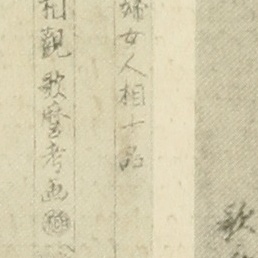 婦女人相十品
相觀歌麿考画
歌